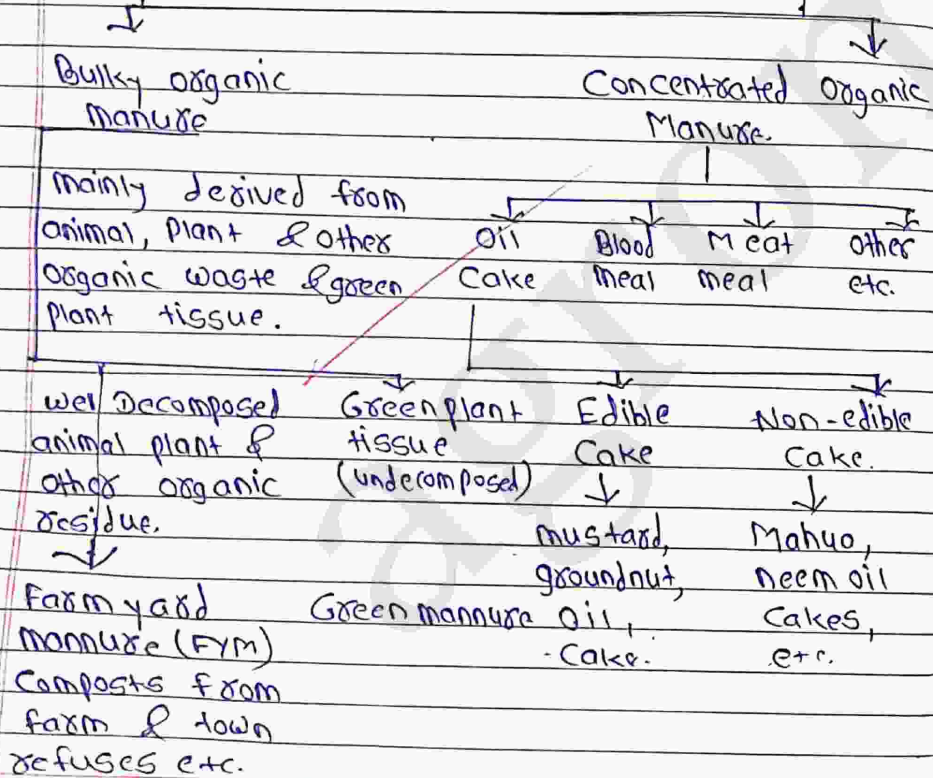 Bulky organic
manure
Concentrated Organic
Manure.
mainly derived from
animal, Plant & other
organic waste & green
Plant tissue.
Oil
Cake
Blood
meal
Meat
meal
other
etc.
Well Decomposed
animal plant &
other organic
residue.
Green plant
tissue
(undecomposed)
Edible
Cake
Non-edible
Cake.
mustard,
groundnut,
Oil,
- Cake.
Mahuo,
neem oil
Cakes,
etc.
Farm yard
mannure (FYM)
Composts from
farm & town
refuses etc.
Green mannure
agron